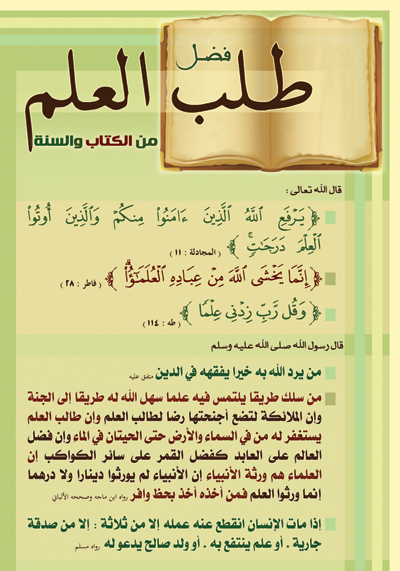 فضل
طلب العلم
من الكتاب والسنة
قال الله تعالى :
﴿ يَرْفَعِ اللَّهُ الَّذِينَ ءَامَنُوا۟ مِنكُمْ وَالَّذِينَ أُوتُوا۟
الْعِلْمَ دَرَجَٰتٍ ۚ ﴾ ( المجادلة : ١١ )
﴿ إِنَّمَا يَخْشَى اللَّهَ مِنْ عِبَادِهِ الْعُلَمَٰٓؤُا۟ ۗ ﴾ ( فاطر : ٢٨ )
﴿ وَقُل رَّبِّ زِدْنِي عِلْمًا ﴾ ( طه : ١١٤ )
قال رسول الله صلى الله عليه وسلم
من يرد الله به خيرا يفقهه في الدين متفق عليه
من سلك طريقا يلتمس فيه علما سهل الله له طريقا إلى الجنة
وان الملائكة لتضع أجنحتها رضا لطالب العلم وان طالب العلم
يستغفر له من في السماء والأرض حتى الحيتان في الماء وان فضل
العالم على العابد كفضل القمر على سائر الكواكب إن
العلماء هم ورثة الأنبياء إن الأنبياء لم يورثوا دينارا ولا درهما
إنما ورثوا العلم فمن أخذه أخذ بحظ وافر رواه ابن ماجه وصححه الألباني
إذا مات الإنسان انقطع عنه عمله إلا من ثلاثة : إلا من صدقة
جارية . أو علم ينتفع به . أو ولد صالح يدعو له رواه مسلم